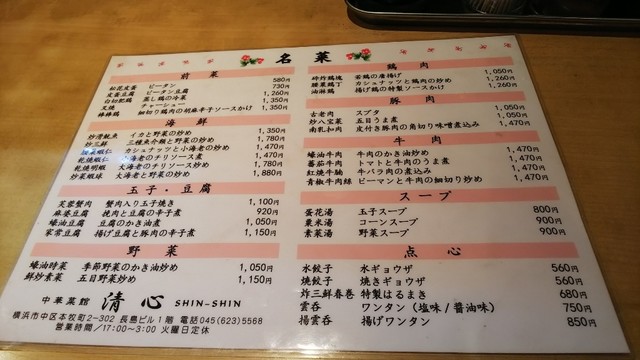 名菜
前菜
松花皮蛋 ピータン 580円
皮蛋豆腐 ピータン豆腐 730円
白切肥鶏 蒸し鶏の冷菜 1,260円
叉焼 チャーシュー 1,350円
棒棒鶏 細切り鶏肉の胡麻辛子ソースかけ 1,350円
海鮮
炒湯魷魚 イカと野菜の炒め 1,350円
炒三鮮 三種魚介類と野菜の炒め 1,780円
カシュナッツと小海老の炒め 1,470円
乾焼蝦仁 小海老のチリソース煮 1,470円
乾焼明蝦 大海老のチリソース炒め 1,780円
炒菜蝦球 大海老と野菜の炒め 1,880円
玉子・豆腐
芙蓉蟹肉 蟹肉入り玉子焼き 1,100円
麻婆豆腐 挽肉と豆腐の辛子煮 920円
蠔油豆腐 豆腐のかき油煮 1,050円
家常豆腐 揚げ豆腐と豚肉の辛子煮 1,150円
野菜
蠔油時菜 季節野菜のかき油炒め 1,050円
鮮炒素菜 五目野菜炒め 1,150円
中華菜館 清心 SHIN-SHIN
横浜市中区本牧町2-302 長島ビル1階 電話045(623)5568
営業時間/17:00〜3:00 火曜日定休
鶏肉
若鶏の唐揚げ 1,050円
腰菓鶏丁 カシュナッツと鶏肉の炒め 1,260円
油淋鶏 揚げ鶏の特製ソースかけ 1,260円
豚肉
古老肉 スブタ 1,050円
炒八宝菜 五目うま煮 1,050円
南乳扣肉 皮付き豚肉の角切り味噌煮込み 1,470円
牛肉
蠔油牛肉 牛肉のかき油炒め 1,470円
蕃茄牛肉 トマトと牛肉のうま煮 1,470円
紅焼牛腩 牛バラ肉の煮込み 1,470円
青椒牛肉絲 ピーマンと牛肉の細切り炒め 1,470円
スープ
蛋花湯 玉子スープ 800円
粟米湯 コーンスープ 900円
素菜湯 野菜スープ 900円
点心
水餃子 水ギョウザ 560円
焼餃子 焼きギョウザ 560円
炸三鮮春巻 特製はるまき 680円
雲呑 ワンタン（塩味/醤油味） 750円
揚雲呑 揚げワンタン 850円